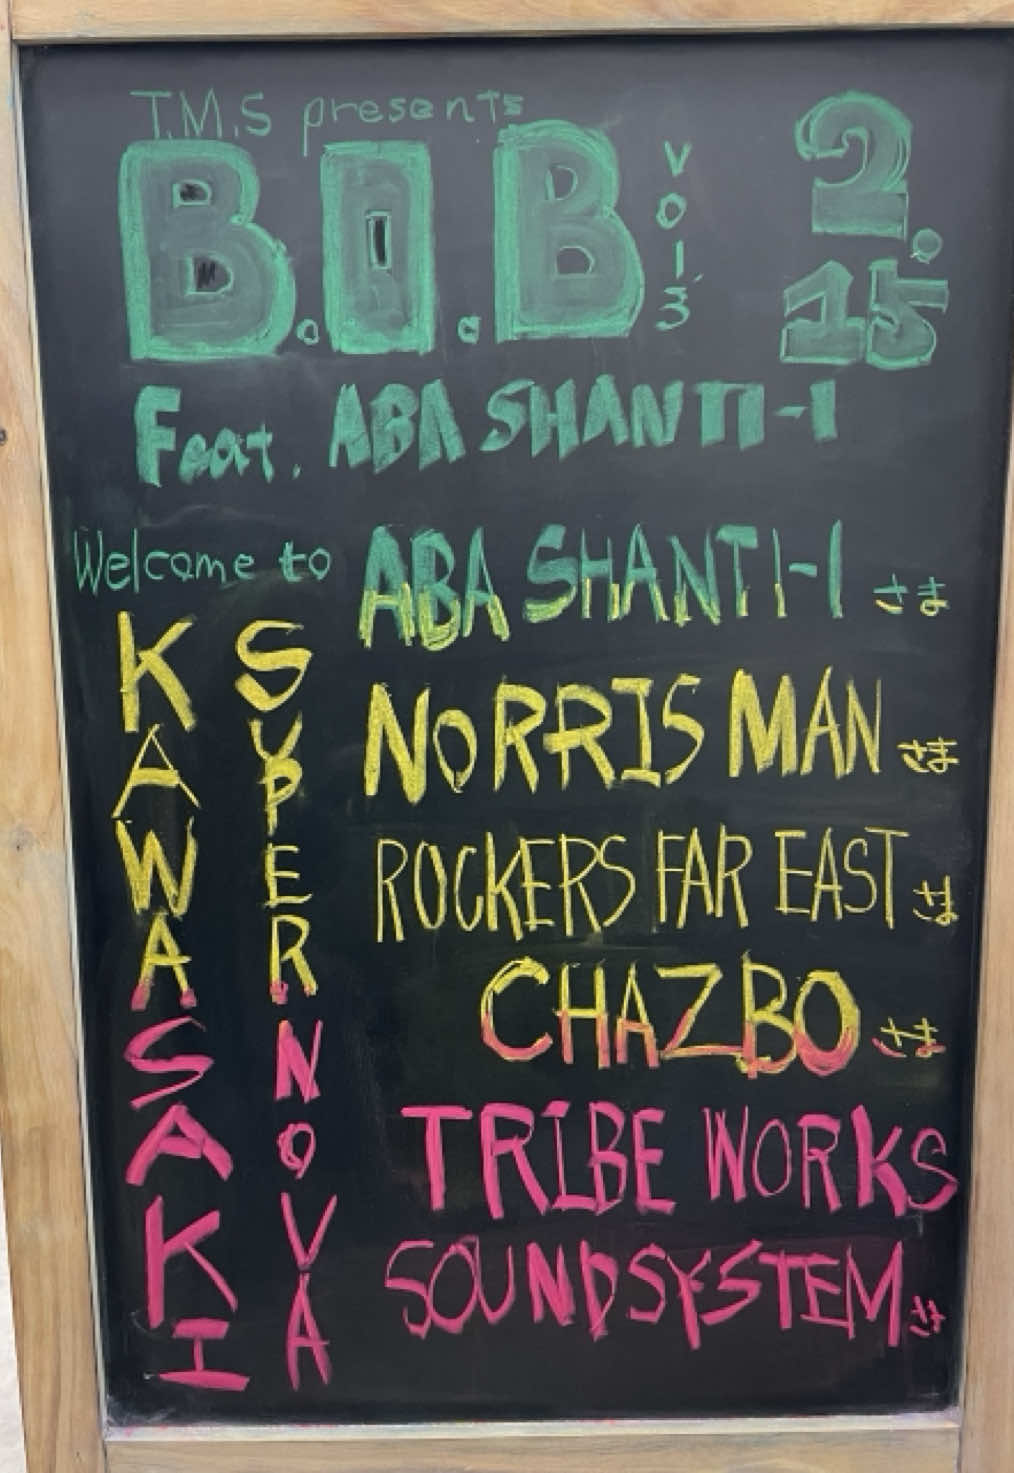 T.M.S presents
B.O.B vol.3
2.15
Feat. ABA SHANTI-I
Welcome to
KAWASAKI
SUPERNOVA
ABA SHANTI-I さま
NORRIS MAN さま
ROCKERS FAR EAST さま
CHAZBO さま
TRIBE WORKS
SOUNDSYSTEM さま